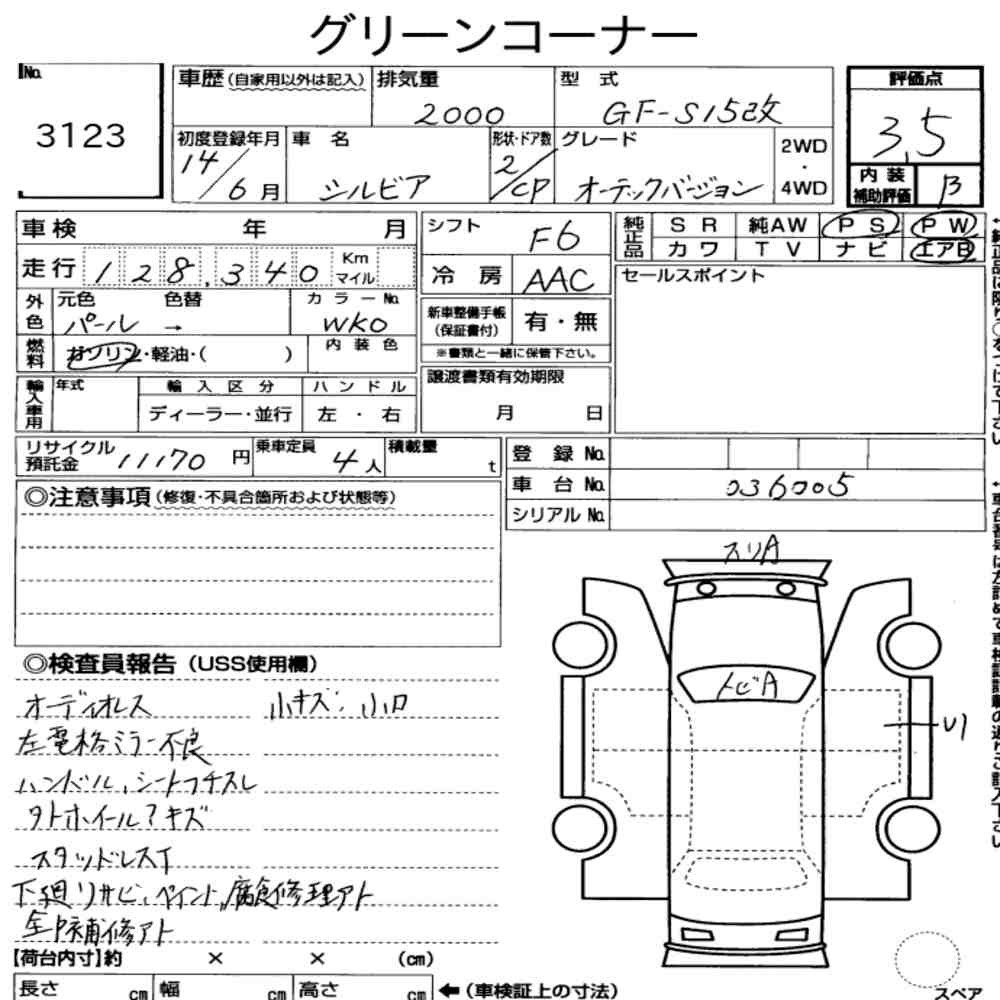 グリーンコーナー
No. 3123
車歴(自家用以外は記入) 排気量 2000 型式 GF-S15改
初度登録年月 14/6月 車名 シルビア 形状・ドア数 2/CP グレード オーテックバージョン 2WD・4WD
評価点 3.5
内装補助評価 B
車検 年 月
走行 128,340 Km マイル
外色 元色 パール 色替 → カラーNo. WK0
燃料 ガソリン・軽油・( ) 内装色
輸入車用 年式 輸入区分 ディーラー・並行 ハンドル 左・右
シフト F6
冷房 AAC
新車整備手帳(保証書付) 有・無
※書類と一緒に保管下さい。
譲渡書類有効期限 月 日
純正品 SR 純AW PS PW
カワ TV ナビ エアB
セールスポイント
←純正品に限り○をつけて下さい
リサイクル預託金 11170 円 乗車定員 4人 積載量 t
登録No.
車台No. 036005
シリアルNo.
◎注意事項(修復・不具合箇所および状態等)
◎検査員報告(USS使用欄)
オーディオレス 小キズ、小凹
左電格ミラー不良
ハンドル、シートフチスレ
タトホイール7キズ
スタッドレスT
下廻りサビ、ペイント、腐食修理アト
全P補修アト
スリA
トビA
U1
スペア
【荷台内寸】約 × × (cm)
長さ cm 幅 cm 高さ cm ←(車検証上の寸法)